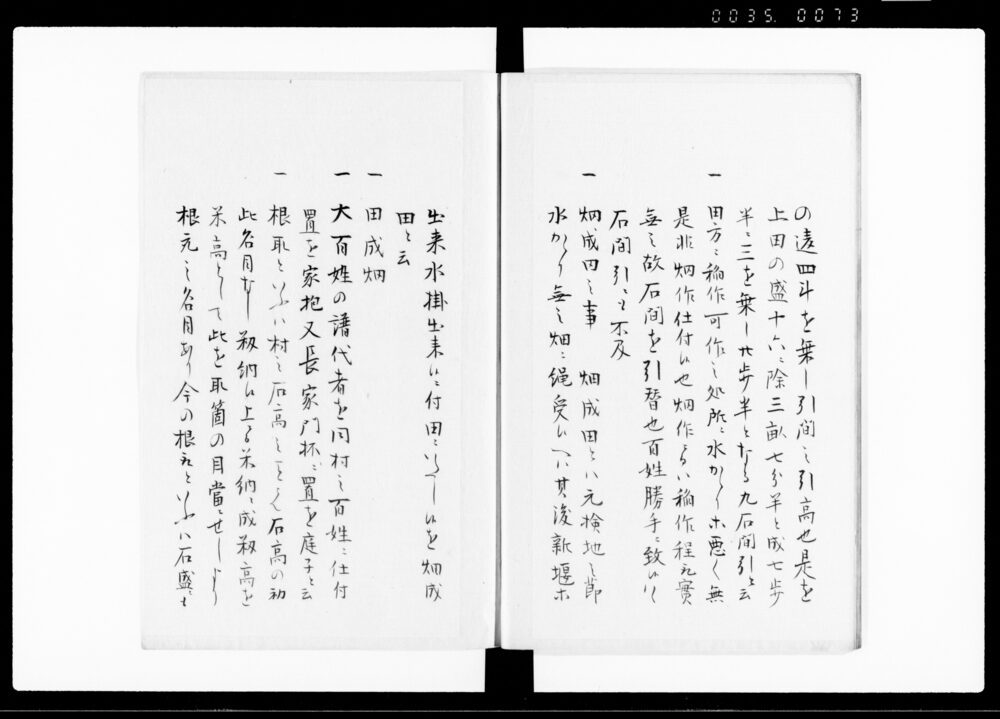 0035.0073
の遠四斗を乗し引間之引高也是を
上田の盛十六ニ除三畝七分半と成七歩
半ニ三を乗し廿歩半となる九石間引と云
一 田方ニ稲作可作之処所ニ水かゝりホ悪く無
是非畑作仕付候也畑作るハ稲作程ハ實
無之故石間を引替也百姓勝手ニ致候ハ
石間引ニ不及
一 畑成田之事 畑成田とハ元検地之節
水かゝり無之畑ニ縄受候へハ其後新堰ホ
出来水掛出来候ニ付田ニいたし候を畑成
田と云
一 田成畑
一 大百姓の譜代者を同村之百姓ニ仕付
置を家抱又長家門抔ニ置を庭子と云
一 根取といふハ村之石高之ことく石高の初
此名目なし籾納候上る米納ニ成籾高を
米高として此を取箇の目當ニせしより
根元之名目あり今の根元といふハ石盛ニも